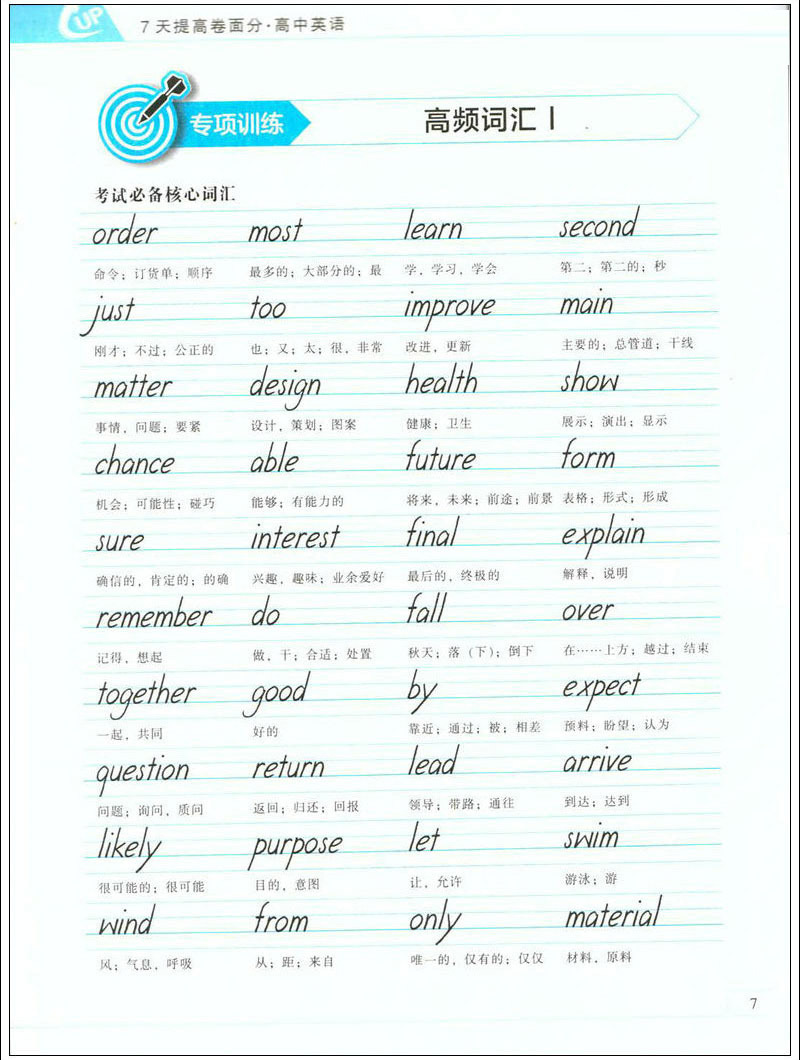 UP
7天提高卷面分·高中英语
专项训练 高频词汇Ⅰ
考试必备核心词汇
order most learn second
命令；订货单；顺序 最多的；大部分的；最 学，学习，学会 第二；第二的；秒
just too improve main
刚才；不过；公正的 也；又；太；很，非常 改进，更新 主要的；总管道；干线
matter design health show
事情，问题；要紧 设计，策划；图案 健康；卫生 展示；演出；显示
chance able future form
机会；可能性；碰巧 能够；有能力的 将来，未来；前途；前景 表格；形式；形成
sure interest final explain
确信的，肯定的；的确 兴趣，趣味；业余爱好 最后的，终极的 解释，说明
remember do fall over
记得，想起 做，干；合适；处置 秋天；落（下）；倒下 在……上方；越过；结束
together good by expect
一起，共同 好的 靠近；通过；被；相差 预料；盼望；认为
question return lead arrive
问题；询问，质问 返回；归还；回报 领导；带路；通往 到达；达到
likely purpose let swim
很可能的；很可能 目的，意图 让，允许 游泳；游
wind from only material
风；气息，呼吸 从；距；来自 唯一的，仅有的；仅仅 材料，原料
7